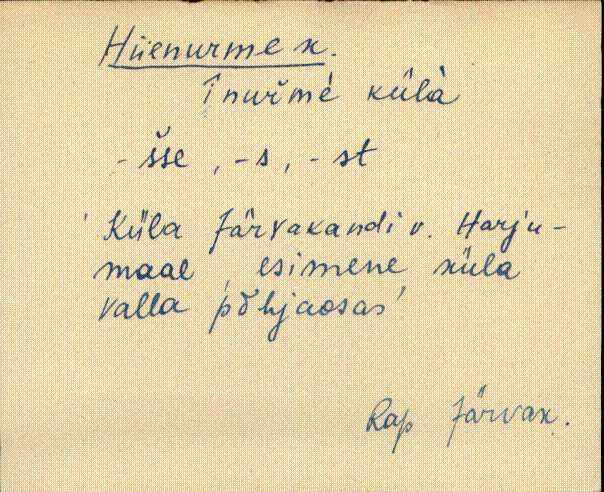 Hiienurme k.
înuřmè külà
- šse, -s, - st
' Küla Järvakandi v. Harju-
maal, esimene küla
valla põhjaosas'
Rap Järvak.